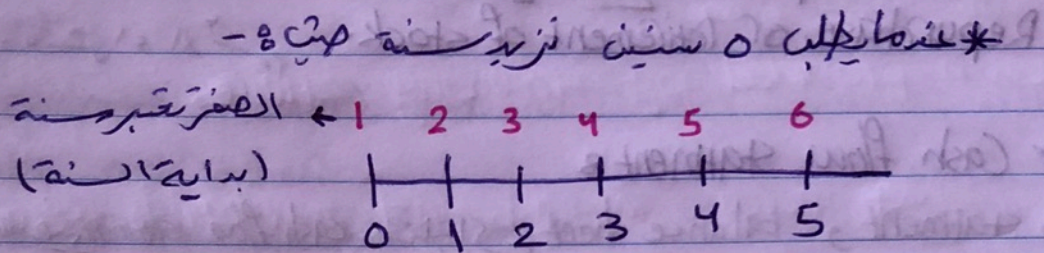 * عندما يطلب ٥ سنين نزيد سنة حيث :-
الصفر تعتبر سنة ← 1 2 3 4 5 6
(بداية السنة)
0 1 2 3 4 5